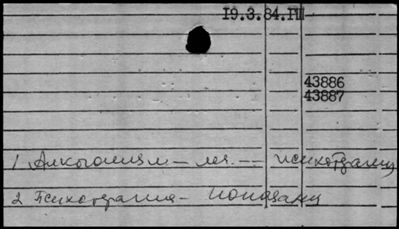 19.3.84.ПШ
43886
43887
1 Алкоголизм – леч. – психотерапия
2 Психотерапия – показания